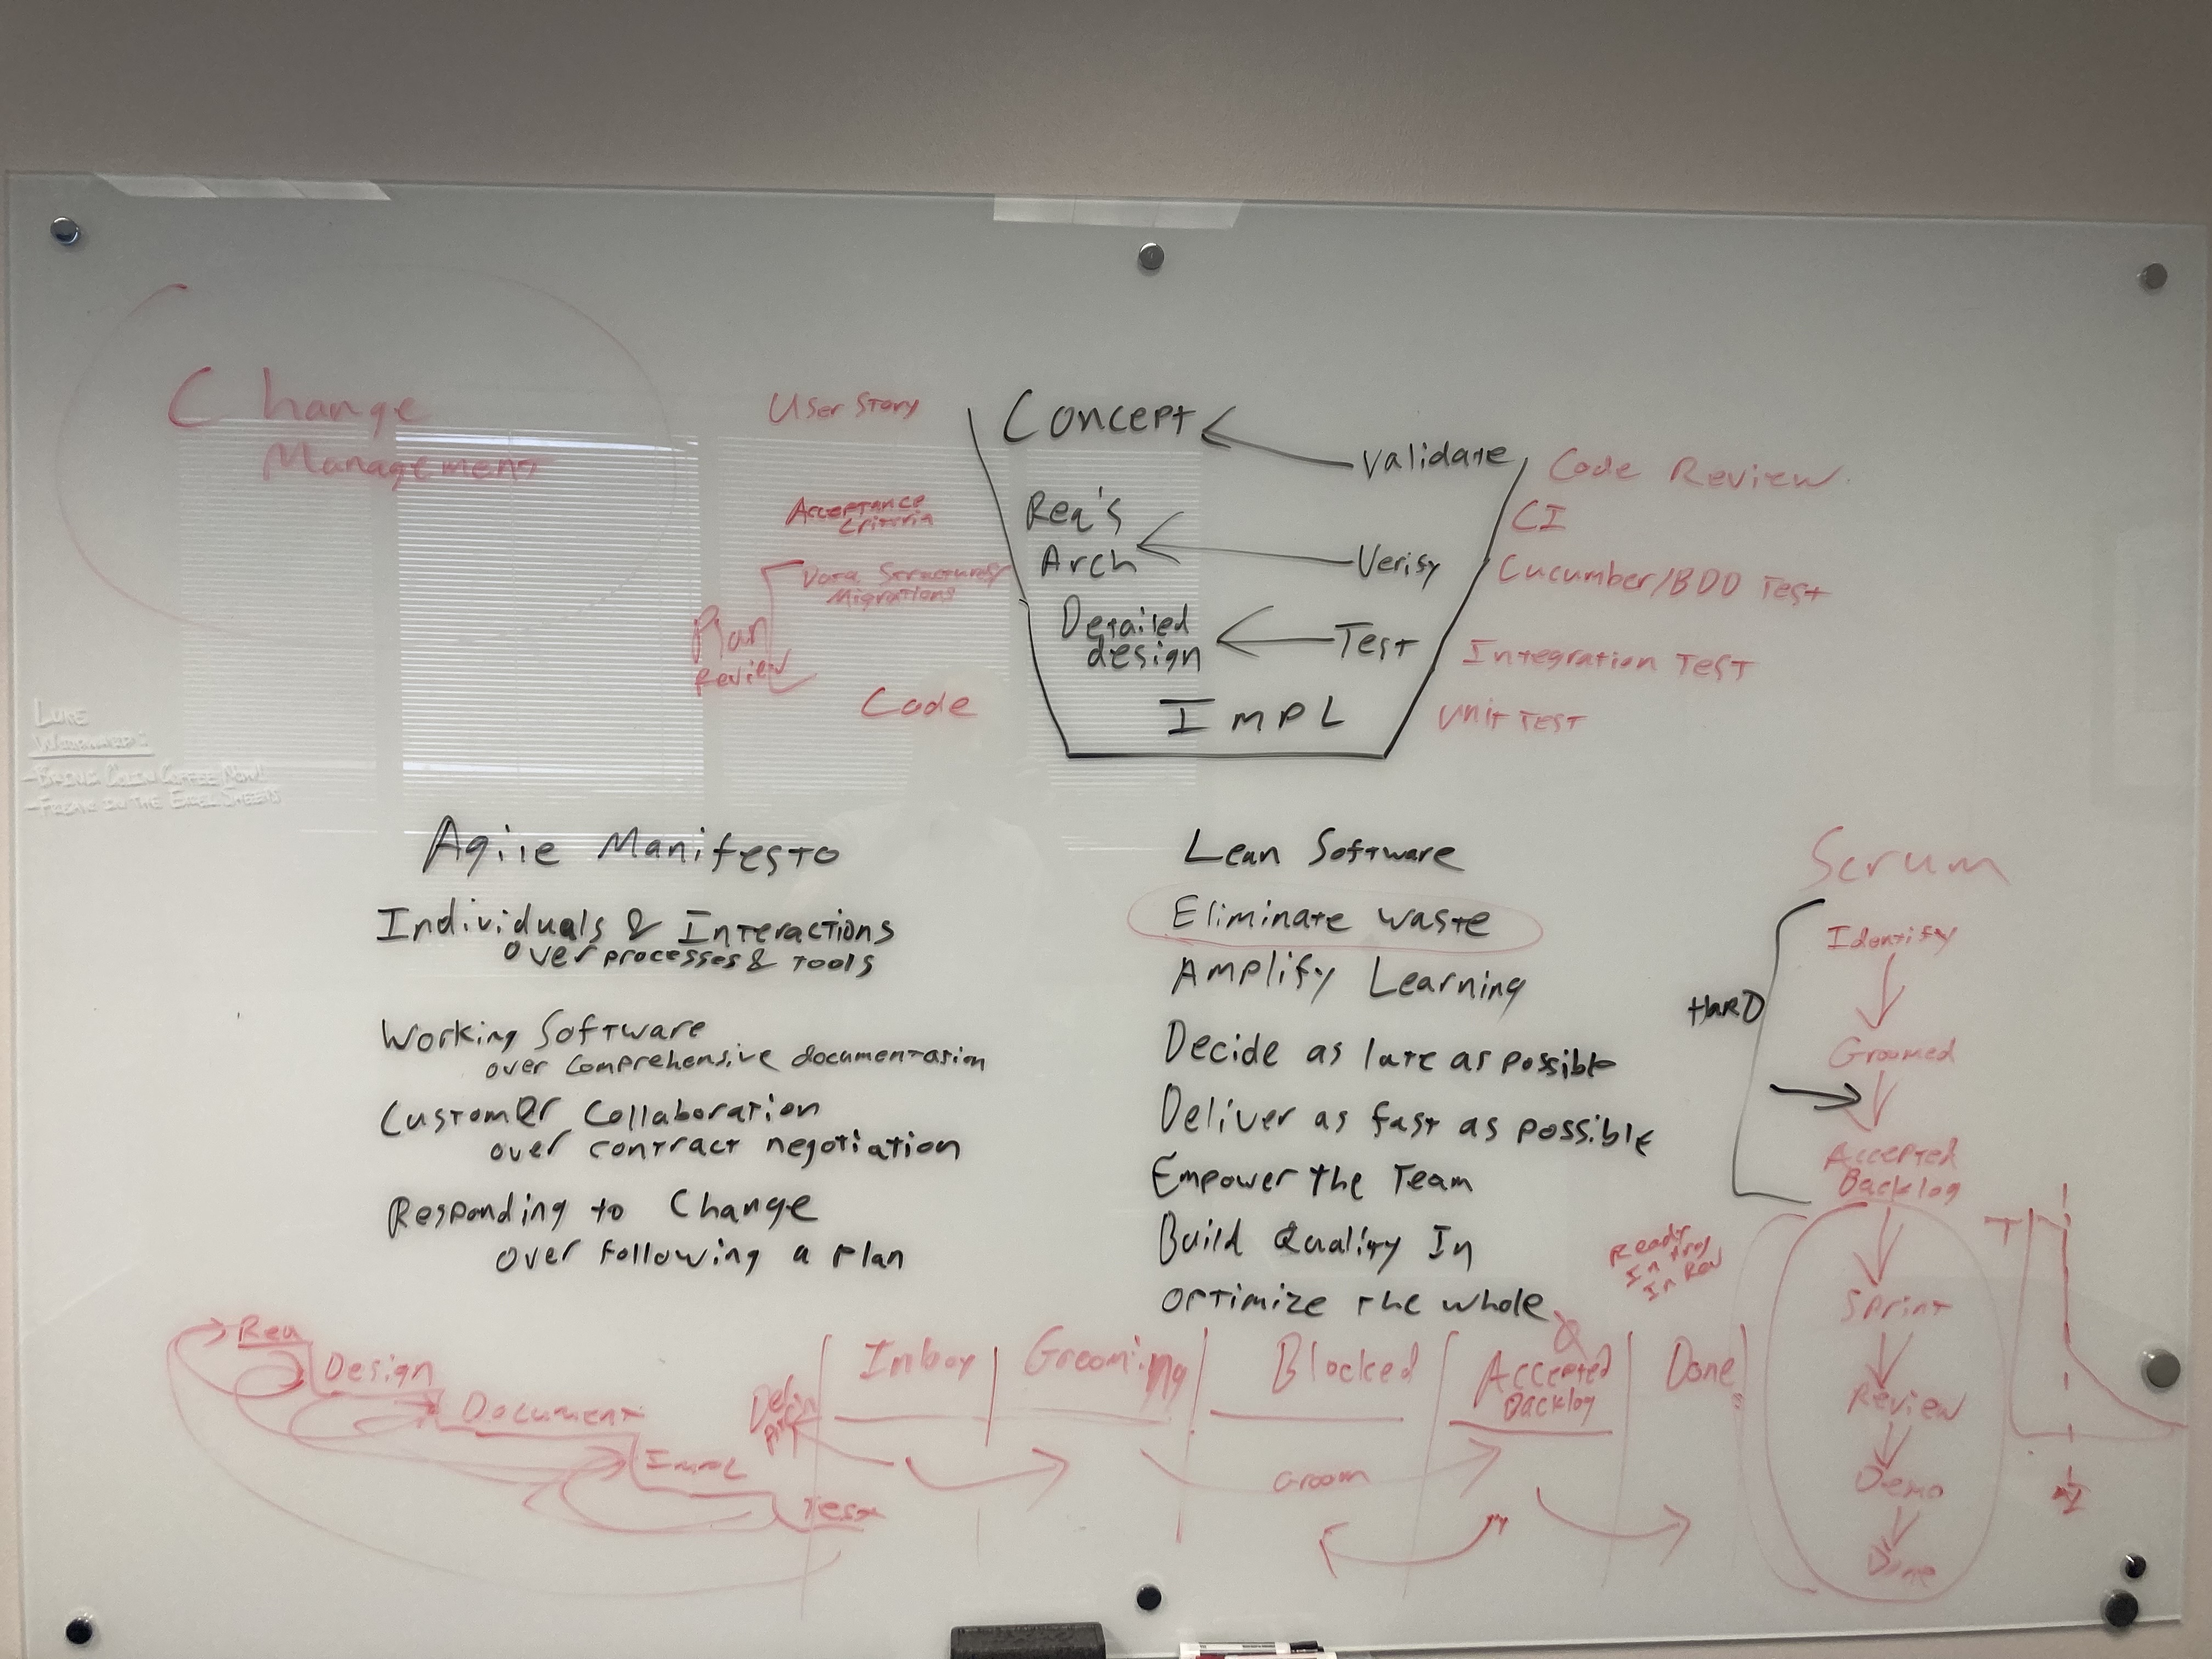 Change
Management
User Story
Acceptance
Criteria
Data Structures/
Migrations
Plan
Review
Code
Concept
Req's
Arch
Detailed
design
IMPL
Validate
Verify
Test
Code Review
CI
Cucumber/BDD Test
Integration Test
Unit Test
Luke
- Bring Colin Coffee Now!
- Freak in the Excel Sheets
Agile Manifesto
Individuals & Interactions
over processes & tools
Working Software
over comprehensive documentation
Customer Collaboration
over contract negotiation
Responding to Change
over following a plan
Lean Software
Eliminate waste
Amplify Learning
Decide as late as possible
Deliver as fast as possible
Empower the Team
Build Quality In
Optimize the whole
Scrum
HARD
Identify
Groomed
Accepted
Backlog
Sprint
Review
Demo
Done
T
Ready
In Prog
In Rev
Req
Design
Document
Impl
Test
Inbox
Grooming
Blocked
Accepted
Backlog
Done
Groom